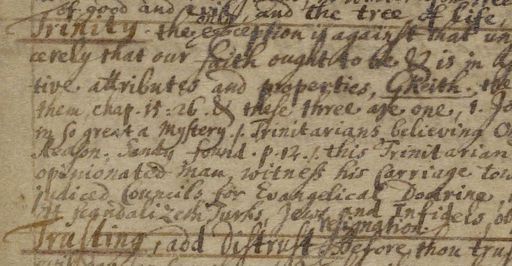 of good and evil, and the tree of life,
Trinity. the only exception is against that un
cerely that our faith ought to be & is in
tive attributes and properties, GKeith. the
them, chap. 15: 26 & these three are one, 1. Jo
in so great a Mystery. /. Trinitarians believing
Reason. Sandy found. p. 12. /. this Trinitarian
opinionated man, witness his carriage tow
judiced Councils for Evangelical Doctrine,
It scandalizeth Turks, Jews and Infidels,
Resignation.
Trusting, add Distrust before thou trus